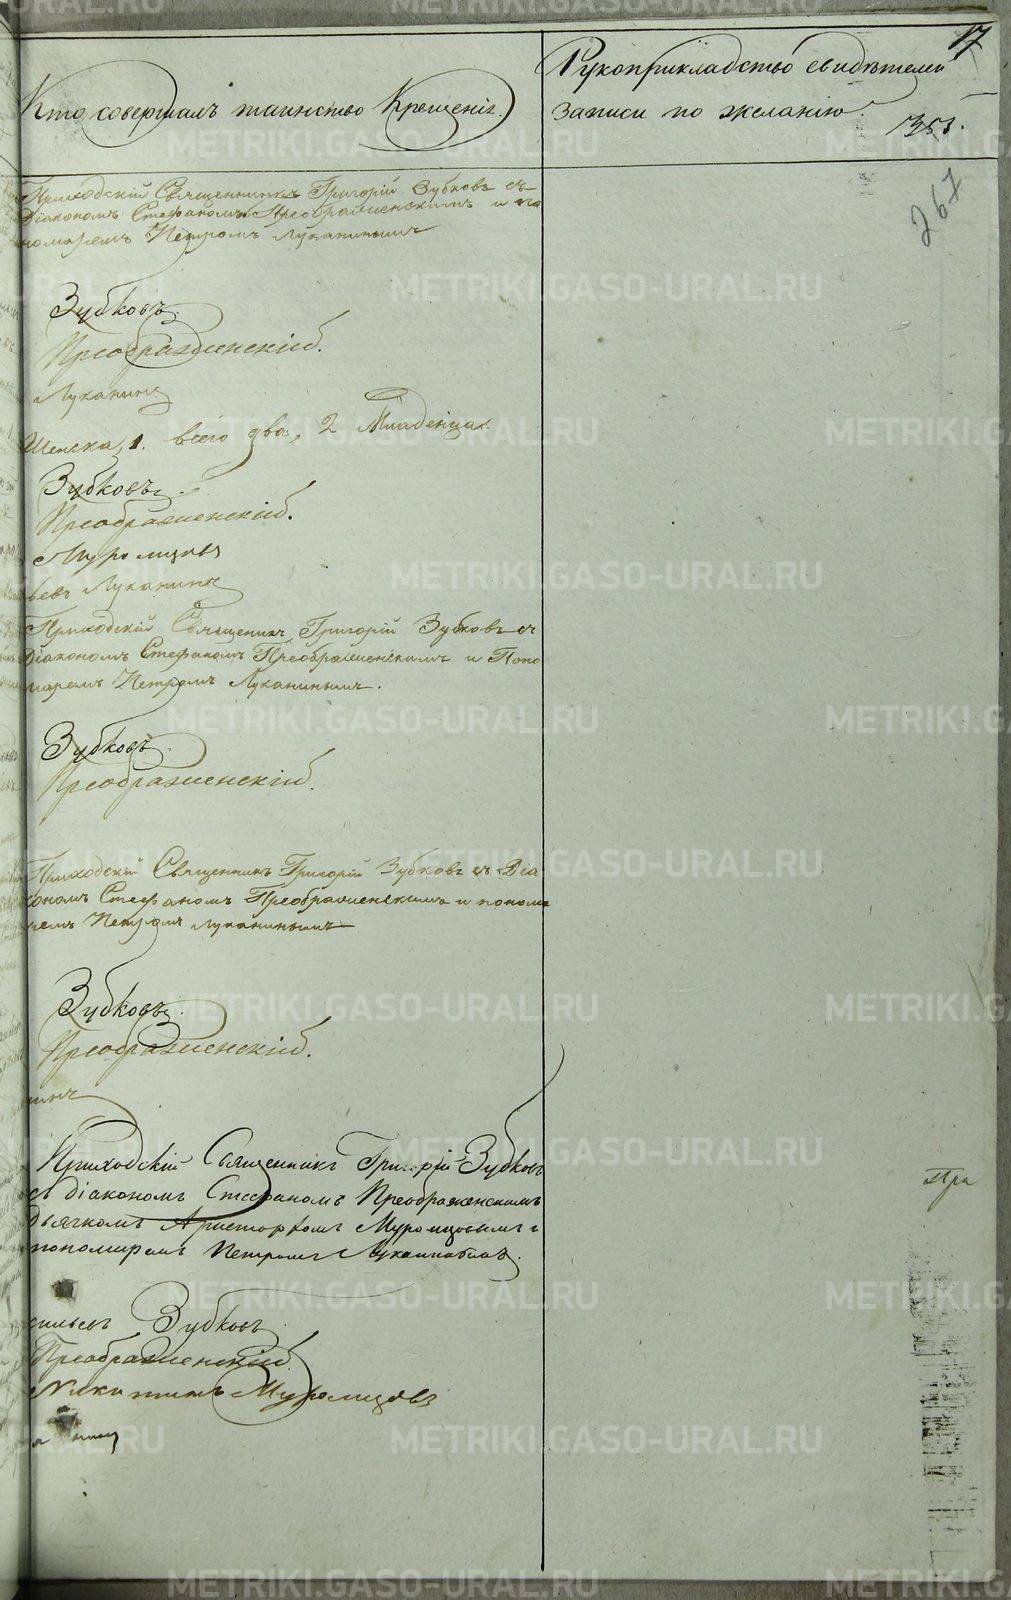 17
Кто совершалъ таинство Крещенія.
Рукоприкладство свидѣтелей
записи по желанію.
351.
267
Приходскій Священникъ Григорій Зубковъ съ
Діакономъ Стефаномъ Преображенскимъ и по
номаремъ Петромъ Луканинымъ
Зубковъ.
Преображенскій.
Луканинъ
Женска, 1. всего два, 2 Младенца.
Зубковъ.
Преображенскій.
Муромцовъ
Луканинъ
Приходскій Священникъ Григорій Зубковъ съ
Діакономъ Стефаномъ Преображенскимъ и Поно
маремъ Петромъ Луканинымъ.
Зубковъ.
Преображенскій.
Приходскій Священникъ Григорій Зубковъ съ Діа
кономъ Стефаномъ Преображенскимъ и понома
ремъ Петромъ Луканинымъ
Зубковъ.
Преображенскій.
нинъ
Приходскій Священникъ Григорій Зубковъ
съ діакономъ Стефаномъ Преображенскимъ
дьячкомъ Аристархомъ Муромцовымъ и
пономаремъ Петромъ Луканинымъ.
Зубковъ.
Преображенскій.
Никитинъ Муромцовъ
Пра
METRIKI.GASO-URAL.RU